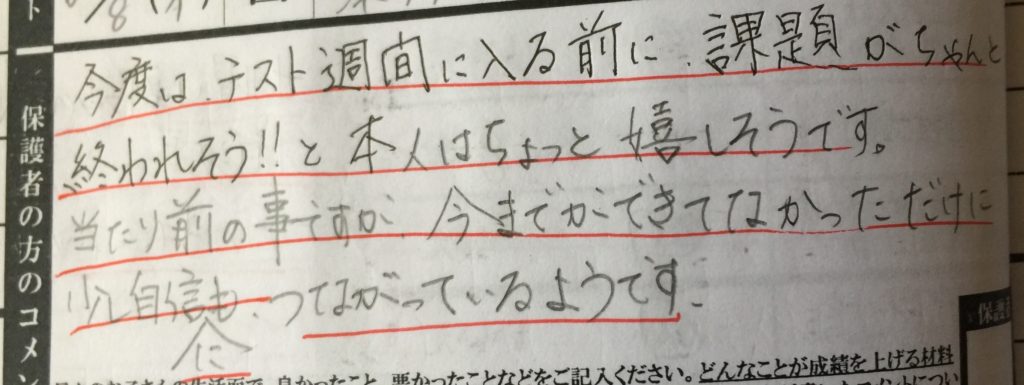 今度は、テスト週間に入る前に、課題がちゃんと
終われそう!!と本人はちょっと嬉しそうです。
当たり前の事ですが、今までができてなかっただけに
少し自信も、つながっているようです。
に
保護者の方のコメン
保護
良かったこと、悪かったことなどをご記入ください。どんなことが成績を上げる材料